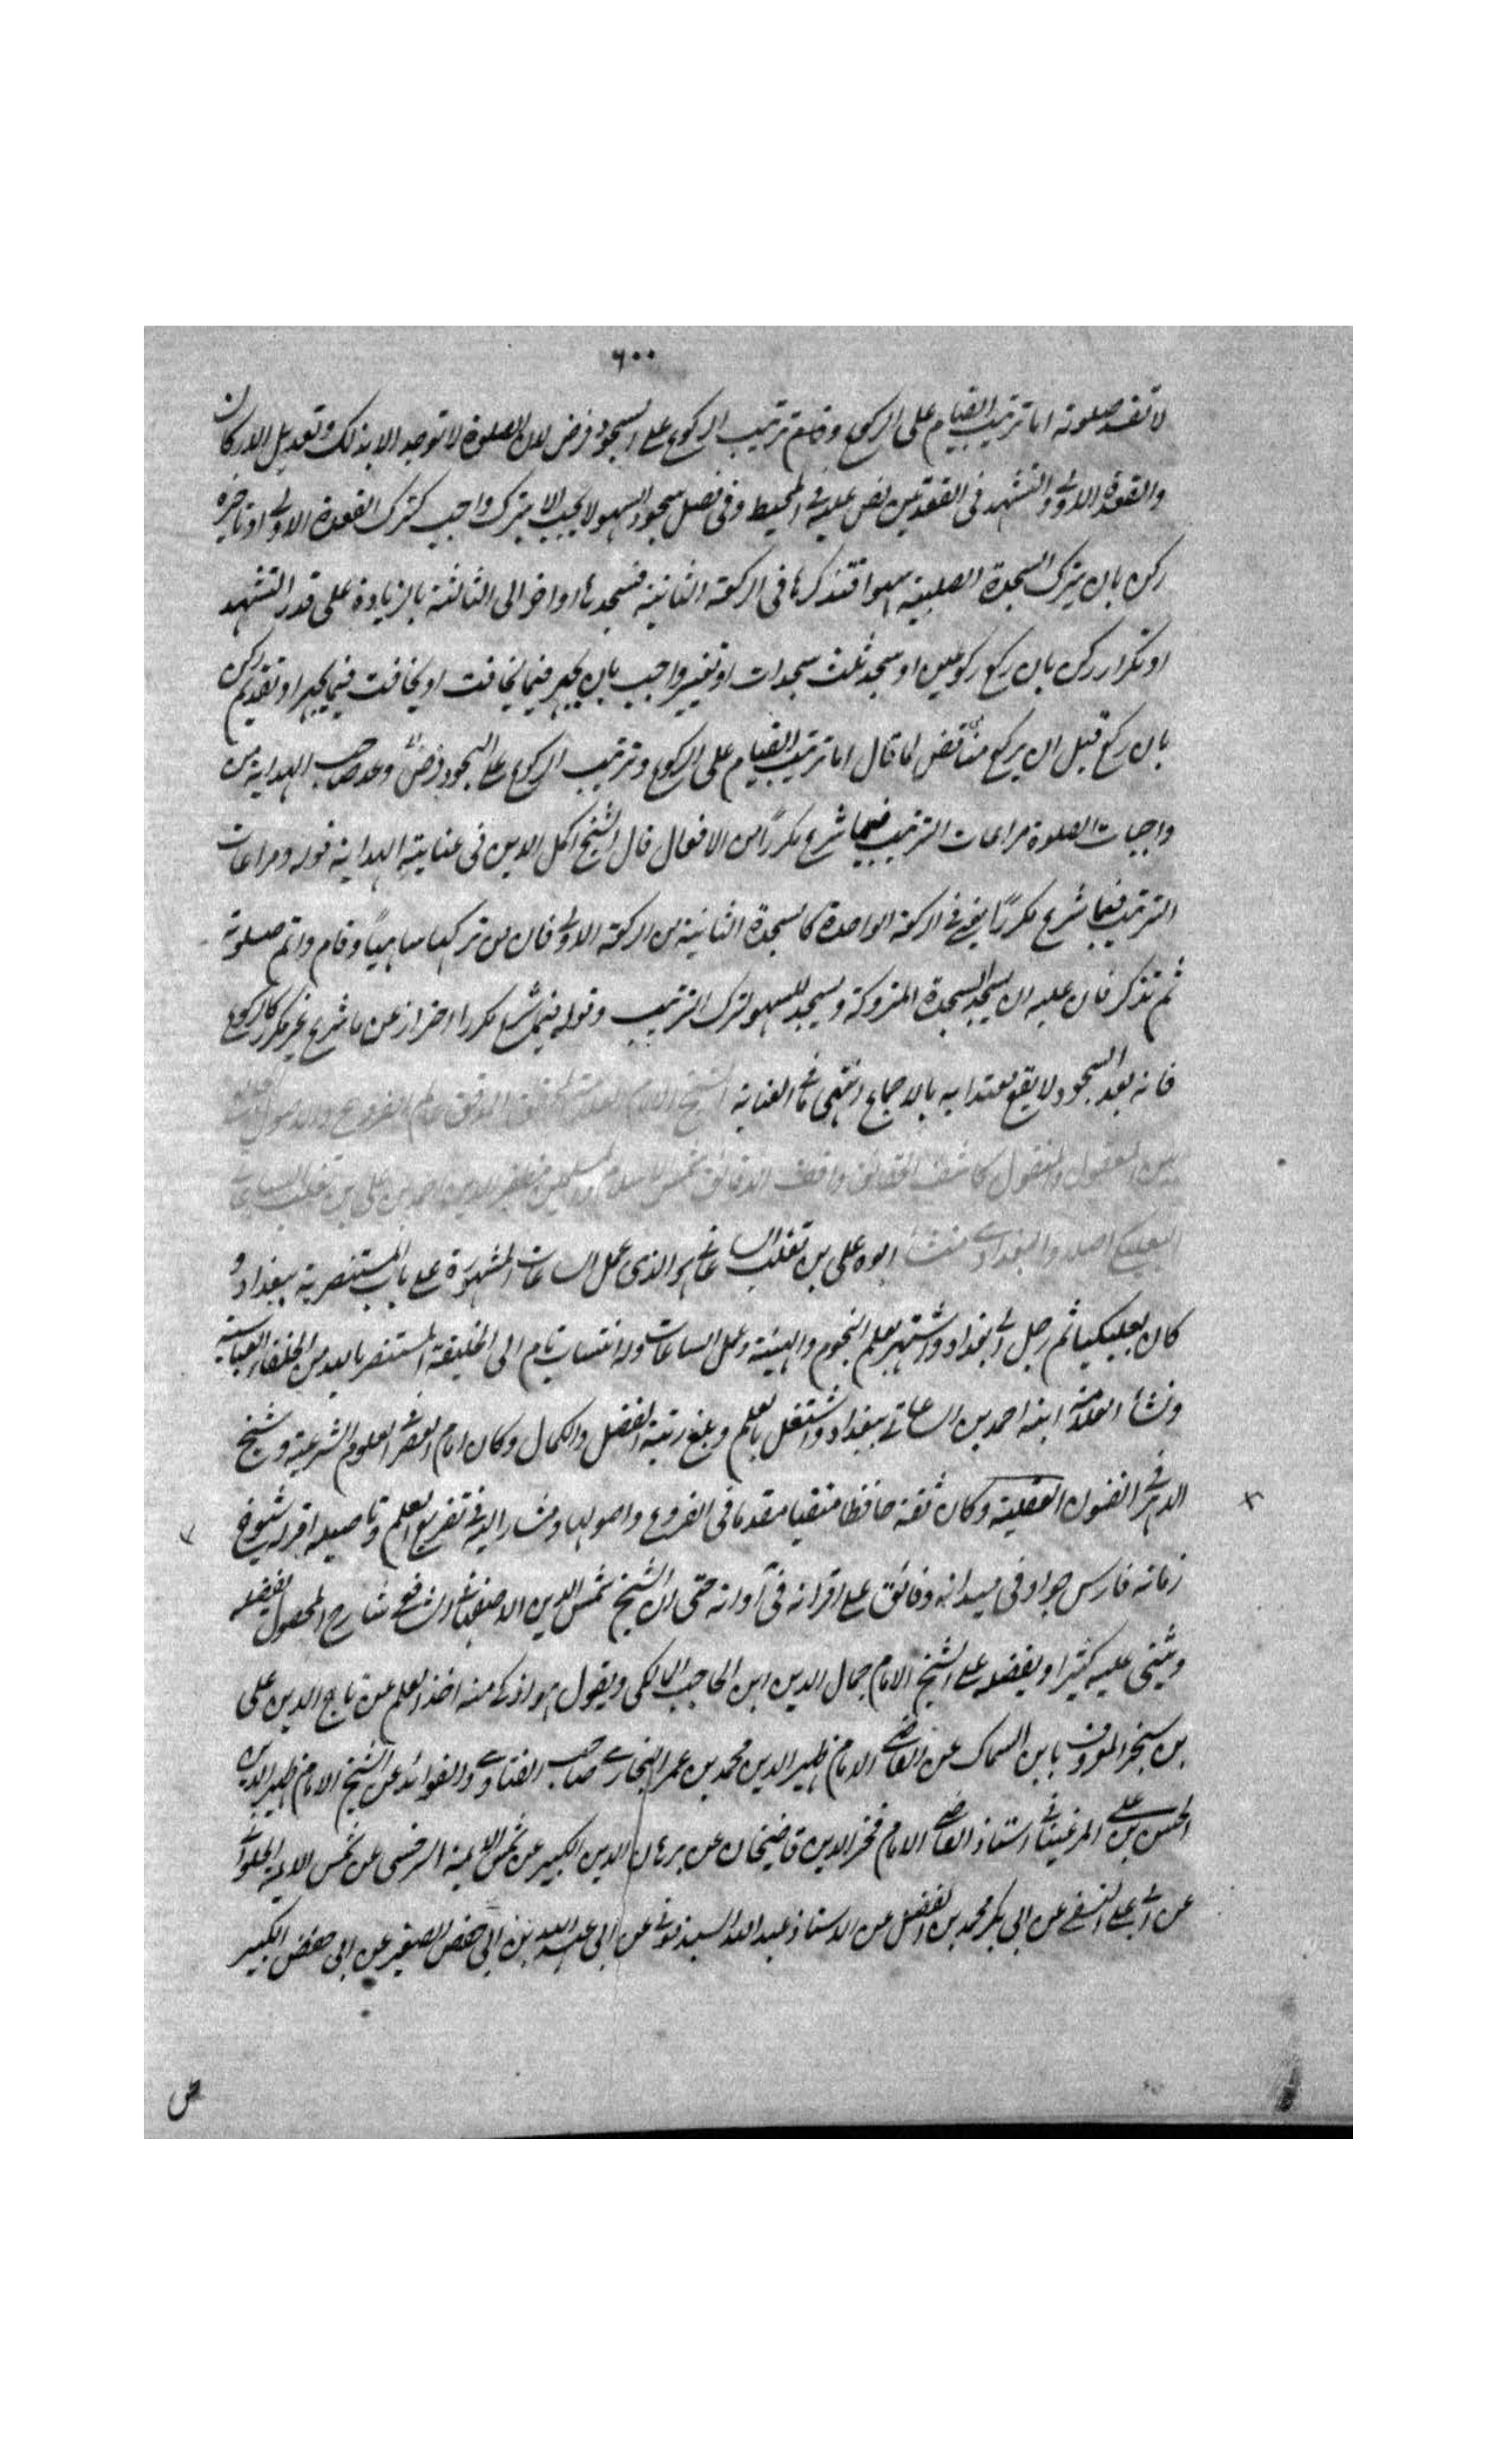 ٦٠٠
لا تفسد صلوته اما ترتيب القيام على الركوع وترتيب الركوع على السجود فرض لان الصلوة لا توجد الا بذلك وتعديل الاركان
والقعدة الاولى والتشهد فى القعدتين نص عليه فى المحيط وفى فصل سجود السهو لا يجب الا بترك واجب كترك القعدة الاولى او تاخيره
ركن بان يترك السجدة الصلبية سهوا فتذكرها فى الركعة الثانية فسجدها او اخر الى الثالثة بالزيادة على قدر التشهد
او تكرار ركن بان ركع ركوعين او سجد ثلث سجدات او تغيير واجب بان يجهر فيما يخافت او يخافت فيما يجهر او تقديم ركن
بان ركع قبل ان يركع مناقض لما قال اما ترتيب القيام على الركوع وترتيب الركوع على السجود فرض وعد صاحب الهداية من
واجبات الصلوة مراعات الترتيب فيما شرع مكررا من الافعال قال الشيخ اكمل الدين فى عناية الهداية قوله ومراعات
الترتيب فيما شرع مكررا يعنى فى الركعة الواحدة كالسجدة الثانية من الركعة الاولى فان من تركها ساهيا وقام واتم صلوته
ثم تذكر فان عليه ان يسجد السجدة المتروكة ويسجد للسهو لترك الترتيب وقوله فيما شرع مكررا احتراز عن ما شرع غير مكرر كالركوع
فانه بعد السجود لا يقع معتدا به بالاجماع انتهى ما فى العناية الشيخ الامام العلامة المحقق المدقق عالم الفروع والاصول
بين المعقول والمنقول كاشف الحقائق واقف الدقائق شمس الاسلام والمسلمين مظفر الدين احمد بن على بن تغلب الساعاتى
البعلبكى اصلا والبغدادى منشأ ابوه على بن تغلب الساعاتى هو الذى عمل الساعات المشهورة على باب المستنصرية ببغداد و
كان بعلبكيا ثم رحل الى بغداد واشتهر بعلم النجوم والهيئة وعمل الساعات وله انتساب تام الى الخليفة المستنصر بالله من الخلفاء العباسية
ونشأ العلامة ابنه احمد بن الساعاتى ببغداد واشتغل بالعلم وبلغ رتبة الفضل والكمال وكان امام العصر فى العلوم الشرعية وشيخ
الدهر فى الفنون العقلية وكان ثقة حافظا متقيا مقدما فى الفروع واصولها ومشار اليه فى تفريع العلم وتاصيله اقر له شيوخ
زمانه فارس جواد فى ميدانه وفائق على اقرانه فى آوانه حتى ان الشيخ شمس الدين الاصفهانى الشافعى شارح المحصول يفضله
ويثنى عليه كثيرا ويفضله على الشيخ الامام جمال الدين ابن الحاجب المالكى ويقول هو اذكى منه اخذ العلم عن تاج الدين على
بن سنجر المعروف بابن السماك عن القاضى الامام ظهير الدين محمد بن عمر البخارى صاحب الفتاوى والفوائد عن الشيخ الامام ظهير الدين
الحسن بن على المرغينانى استاذ القاضى الامام فخر الدين قاضيخان عن برهان الدين الكبير عن شمس الايمة السرخسى عن شمس الايمة الحلوانى
عن ابى على النسفى عن ابى بكر محمد بن الفضل عن الاستاذ عبد الله السبذمونى عن ابى عبد الله بن ابى حفص الصغير عن ابى حفص الكبير